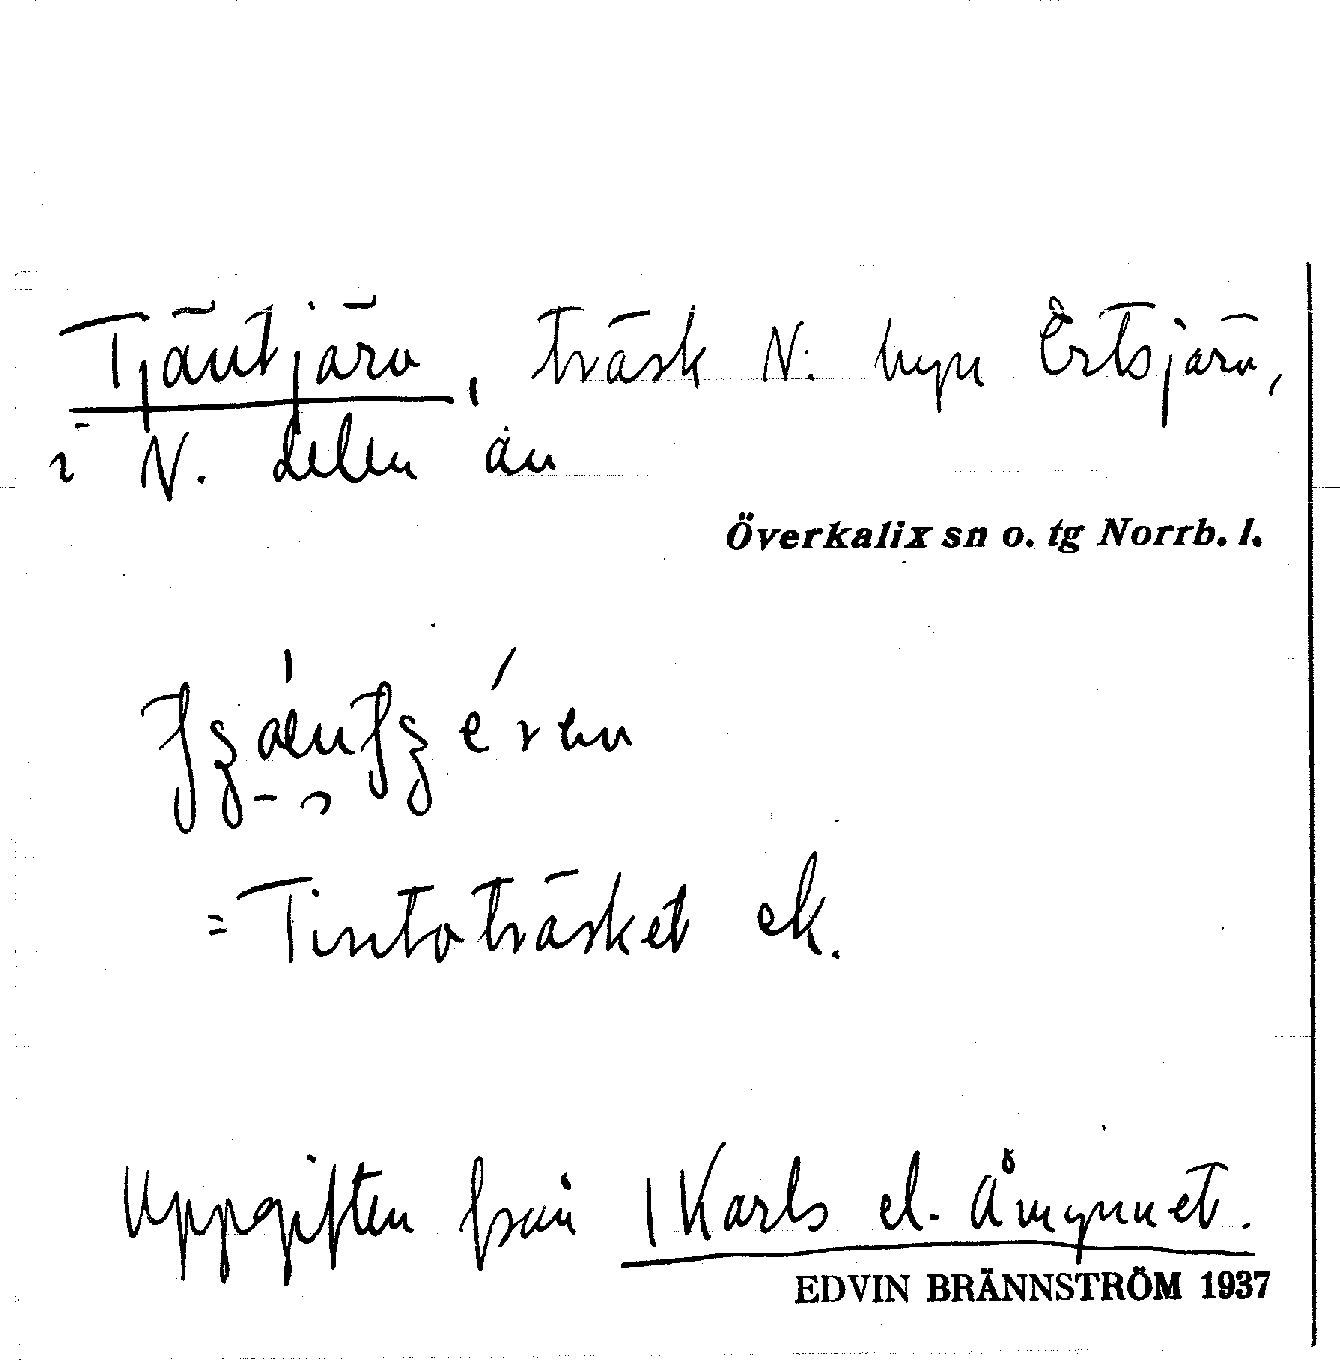 Tjäutjärv, träsk N. byn Ertsjärv,
i N. delen än
Överkalix sn o. tg Norrb. l.
= Tintoträsket ek.
Uppgiften från 1 Karls el. Åmynnet.
EDVIN BRÄNNSTRÖM 1937